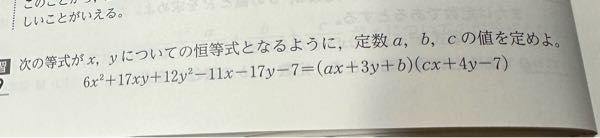 しいことがいえる。
次の等式が x, y についての恒等式となるように，定数 a, b, c の値を定めよ。
6x²+17xy+12y²−11x−17y−7=(ax+3y+b)(cx+4y−7)